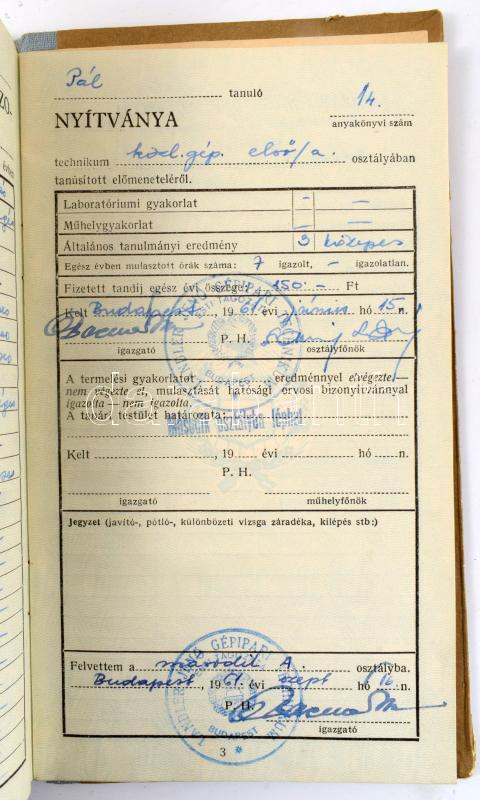 Pál tanuló
14.
NYÍTVÁNYA
anyakönyvi szám
technikum közl. gép. első/a osztályában
tanúsított előmeneteléről.
Laboratóriumi gyakorlat - —
Műhelygyakorlat — —
Általános tanulmányi eredmény 3 közepes
Egész évben mulasztott órák száma: 7 igazolt, - igazolatlan.
Fizetett tandíj egész évi összege: 150.- Ft
Kelt Budapest, 1961. évi június hó 15.n.
P. H.
igazgató osztályfőnök
A termelési gyakorlatot eredménnyel elvégezte,
nem végezte el, mulasztását hatósági orvosi bizonyítvánnyal
igazolta — nem igazolta.
A tanári testület határozata:
osztályba léphet
Kelt , 19 évi hó n.
P. H.
igazgató műhelyfőnök
Jegyzet (javító-, pótló-, különbözeti vizsga záradéka, kilépés stb:)
LANDLER JENŐ GÉPIPARI
BUDAPEST
Felvettem a második A. osztályba.
Budapest, 1961. évi szept hó n.
P. H.
igazgató
3